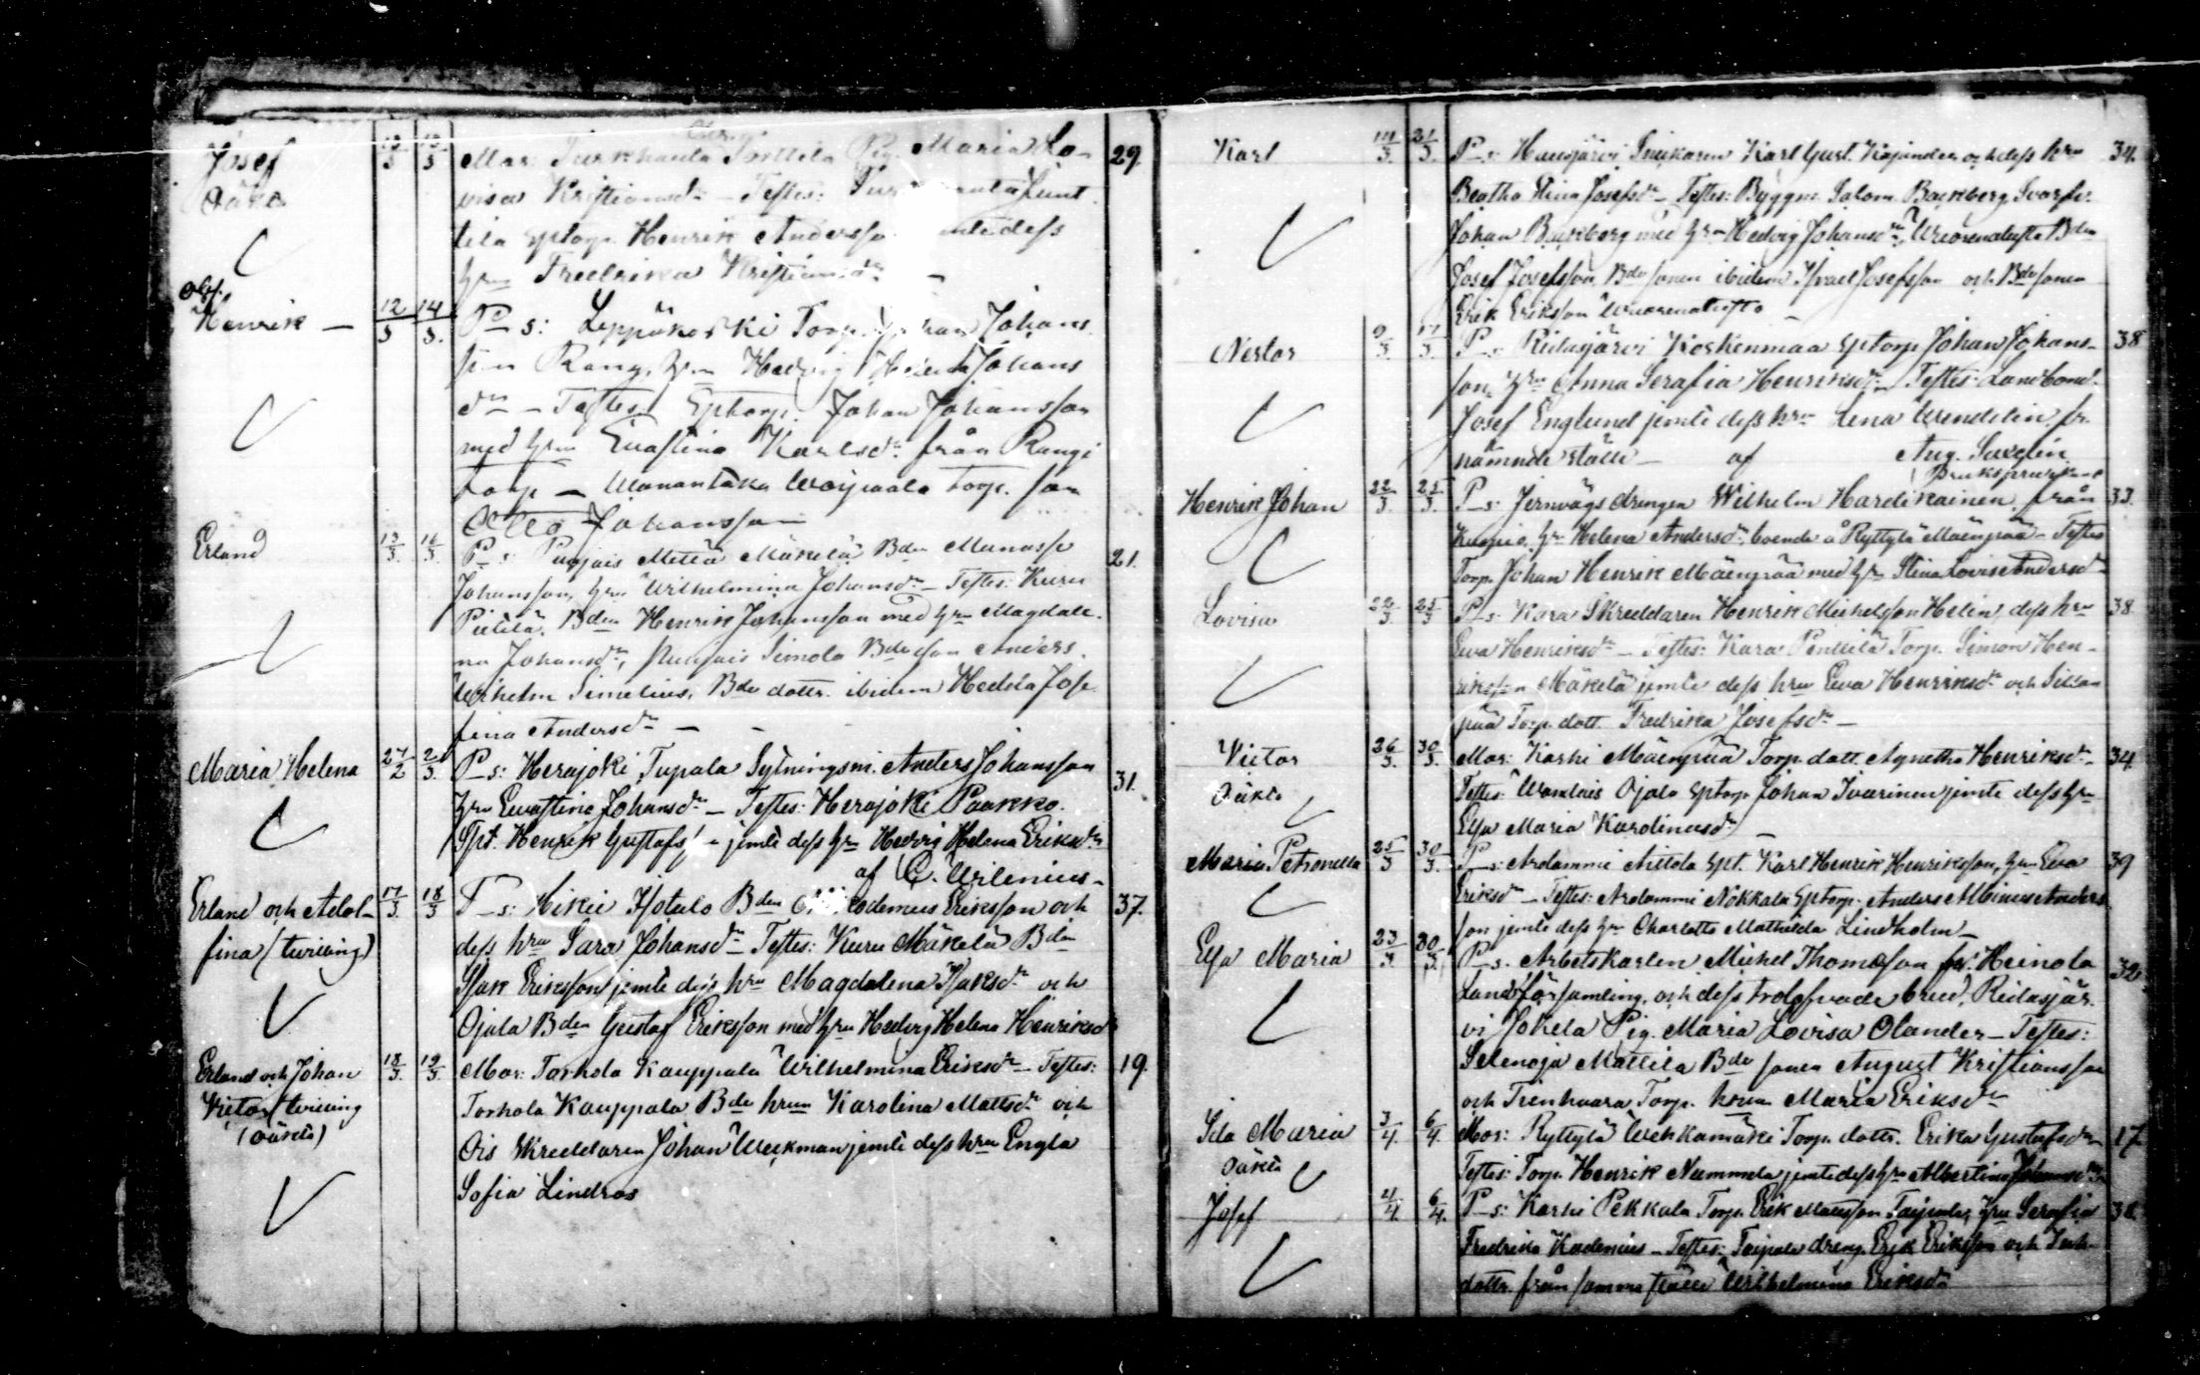 Josef
Oäkta
13/3 13/3
Mar: Turkhauta Torttila Pig. Maria Lo-
visa Kristiansdr – Testes: Junt
tila Sptorp. Henrik Andersso dess
hru Fredrika Kristiansdr –
29
Obs.
Henrik –
12/3 14/3
P-s: Leppäkoski Torp. Johan Johans
son Rang, hru Hedvig Helena Johans
dr – Testes: Sptorp. Johan Johansson
med hru Evastina Karlsdr från Rangi
torp – Wanantaka Woipaala Torp. son
Otto Johansson
Erland
13/3 16/3
P-s: Puujais Mäkelä Bdn Manasse
Johansson, hru Wilhelmina Johansdr – Testes: Kuru
Pietilä, Bdn Henrik Johansson med hru Magdale-
na Johansdr, Puujais Simola Bdeson Anders
Wilhelm Simelius, Bde dottr. ibidem Hedda Jose
fina Andersdr –
21.
Maria Helena
27/2 2/3
P-s: Herajoki Tupala Sytningsm. Anders Johansson
hru Evastina Johansdr – Testes: Herajoki Paakko
Spt. Henrik Gustafss jemte dess hru Hedvig Helena Eriksdr
af C. Wilenius –
31.
Erland och Adol-
fina (tvilling)
17/3 18/3
P-s: Hikie Hotulo Bdn Nikodemus Eriksson och
dess hru Sara Johansdr – Testes: Kuru Mäkelä Bdn
Isak Eriksson jemte dess hru Magdalena Isaksdr och
Ojala Bdn Gustaf Eriksson med hru Hedvig Helena Henriksdr
37.
Erland och Johan
Victor (tvilling
(oäkta)
18/3 19/3
Mor: Torhola Kauppala Wilhelmina Eriksdr – Testes:
Torhola Kauppala Bde hrun Karolina Mattsdr och
Ois Skreddaren Johan Weckman jemte dess hru Engla
Sofia Lindros
19.
Karl
14/3 21/3
P-s: Hausjärvi Snickaren Karl Gust. Kajander och dess hru
Beatha Stina Josefsdr – Testes: Byggm. Salom. Backberg, Svarfv.
Johan Backberg med hru Hedvig Johansdr, Bdn
Josef Josefsson, Bde sonen ibidem Israel Josefsson och Bde sonen
Erik Eriksson –
34.
Nestor
9/3 17/3
P-s: Ridasjärvi Koskenmaa Sptorp. Johan Johans-
son, hru Anna Serafia Henriksdr – Testes: Landbond.
Josef Englund jemte dess hru Lena Wendelin fr.
nämnde ställe – af Aug. Savelin
38
Henrik Johan
22/3 25/3
P-s: Jernvägs drengen Wilhelm Hardikainen från
Kuopio, hru Helena Andersdr, boende å Ryttylä Mäenpää – Testes
Torp. Johan Henrik Mäenpää med hru Stina Lovisa Andersdr
33.
Lovisa
22/3 25/3
P-s: Kara Skreddaren Henrik Michelsson Helin, dess hru
Eva Henriksdr – Testes: Kara Penttilä Torp. Simon Hen-
riksson Mäkelä jemte dess hru Eva Henriksdr och Sillan
pää Torp. dott. Fredrika Josefsdr –
38.
Victor
Oäkta
26/3 30/3
Mor: Karhi Mäenpää Torp. dott. Agnetha Henriksdr –
Testes: Ojala Sptorp. Johan Ivarinen jemte dess hru
Elsa Maria Karolinasdr –
34.
Maria Petronella
25/3 30/3
P-s: Arolammi Aittola Spt. Karl Henrik Henriksson, hru Eva
Eriksdr – Testes: Arolammi Nokkala Sptorp. Anders Anders
son jemte dess hru Charlotta Mathilda Lindholm –
39
Elsa Maria
23/3 30/3
P-s. Arbetskarlen Michel Thomasson fr. Heinola
Landsförsamling, och dess trolofvade brud, Ridasjär-
vi Jokela Pig. Maria Lovisa Olander – Testes:
Selenoja Mattila Bde sonen August Kristiansson
och Trenhaara Torp. hrun Maria Eriksdr
32.
Ida Maria
Oäkta
3/4. 6/4.
Mor: Ryttylä Torp. dottr. Erika Gustafsdr
Testes: Torp. Henrik Nummela jemte dess hru Albertina Johansdr
17.
Josef
4/4. 6/4.
P-s: Karhi Pekkala Torp. Erik Mattsson Taipale, hru Serafia
Fredrika Kadenius – Testes: Taipale dreng. Erik Eriksson och Inh.
dottr. från samma ställe Wilhelmina Eriksdr
38.